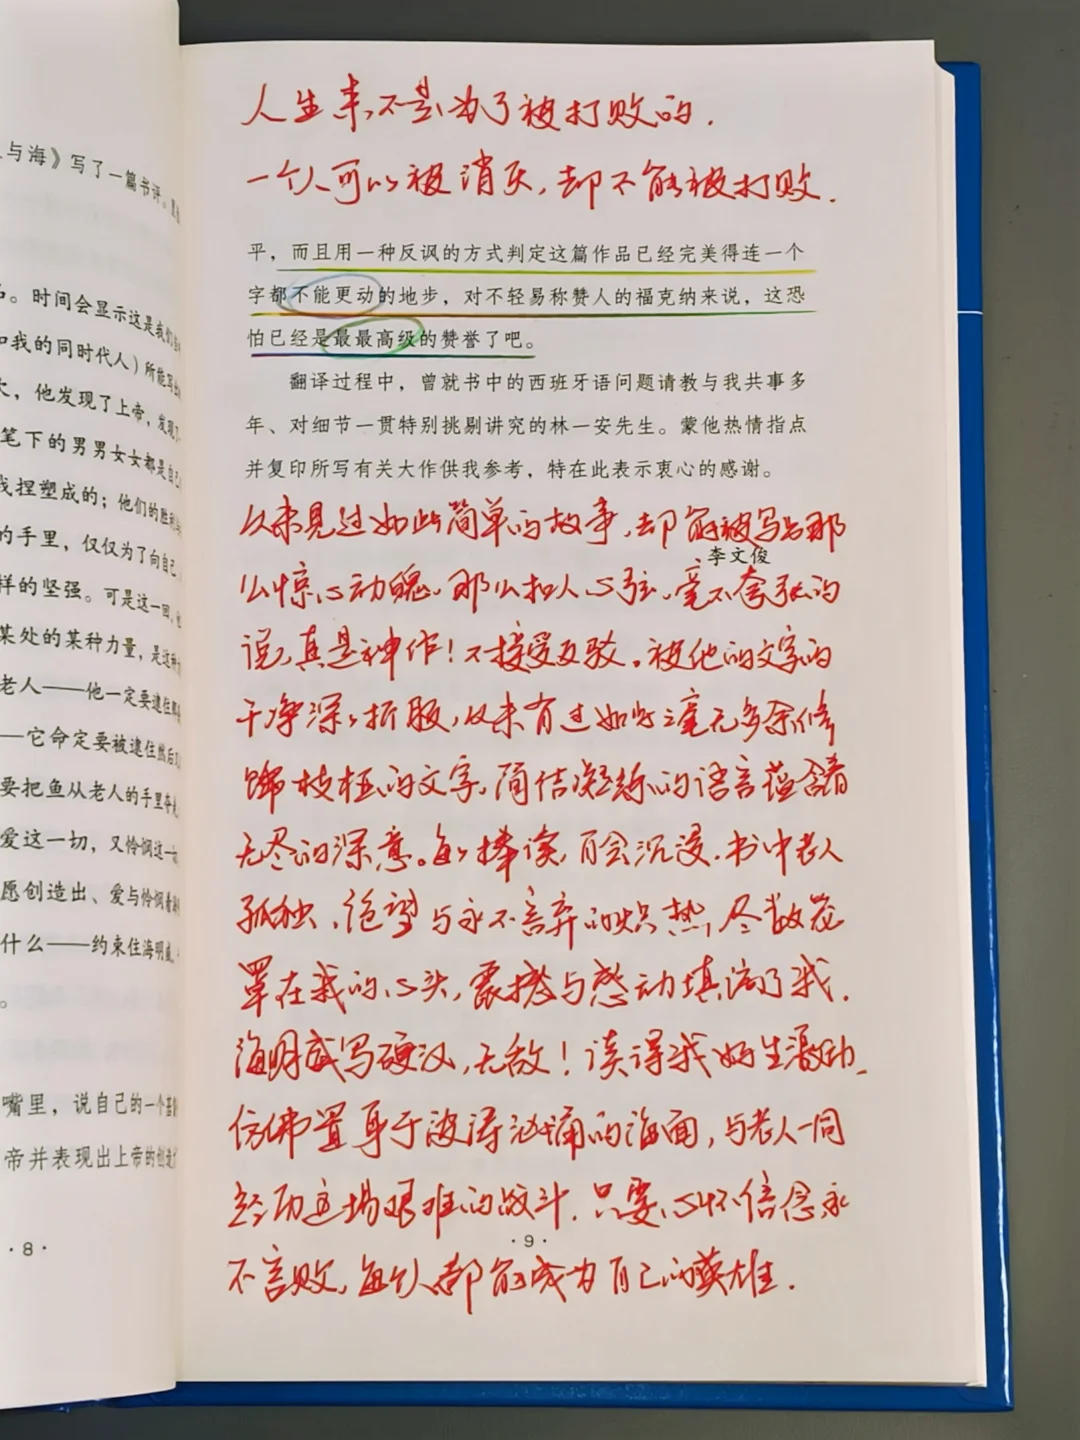 与海》写了一篇书评。
。时间会显示这是我们
和我的同时代人）所能写出
，他发现了上帝，发现
笔下的男男女女都是自己
我捏塑成的；他们的胜利
的手里，仅仅为了向自己
样的坚强。可是这一回，
某处的某种力量，是这种
老人——他一定要逮住那
——它命定要被逮住然后
要把鱼从老人的手里夺
爱这一切，又怜悯这一
愿创造出、爱与怜悯着
什么——约束住海明威
。
嘴里，说自己的一个
帝并表现出上帝的创造
·8·
人生来不是为了被打败的.
一个人可以被消灭,却不能被打败.
平，而且用一种反讽的方式判定这篇作品已经完美得连一个
字都不能更动的地步，对不轻易称赞人的福克纳来说，这恐
怕已经是最最高级的赞誉了吧。
翻译过程中，曾就书中的西班牙语问题请教与我共事多
年、对细节一贯特别挑剔讲究的林一安先生。蒙他热情指点
并复印所写有关大作供我参考，特在此表示衷心的感谢。
李文俊
从未见过如此简单的故事,却能被写得那
么惊心动魄、那么扣人心弦、毫不夸张的
说,真是神作!不接受反驳。被他的文字的
干净深深折服,从未有过如此毫无多余修
饰枝桠的文字,简洁凝练的语言蕴含着
无尽的深意。每每捧读,百会沉浸.书中老人
孤独、绝望与永不言弃的炽热,尽数笼
罩在我的心头,震撼与感动填满了我.
海明威写硬汉,无敌!读得我好生激动.
仿佛置身于波涛汹涌的海面,与老人一同
经历这场艰难的战斗.只要心怀信念,永
不言败,每个人都能成为自己的英雄.
·9·